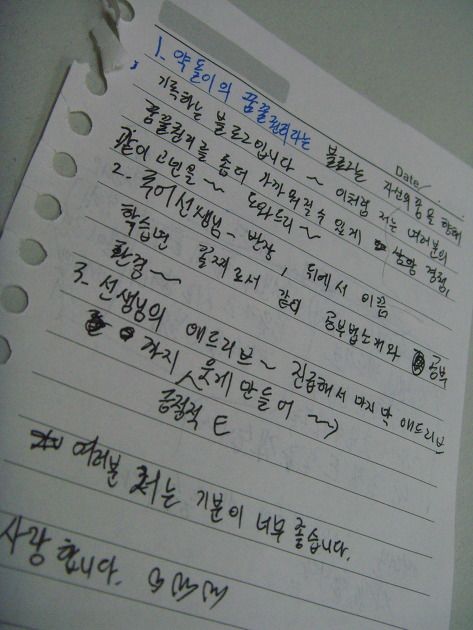 Date/
1. 약돌이의 꿈꿀권리라는 블로그는 자신의 꿈을 향해
기록하는 블로그입니다 ~ 이처럼 저는 여러분의
꿈꿀권리를 좀더 가까워질 수 있게 상황 경청,
같이 고민을 ~ 도와드리~
2. 국어선생님 - 반장, 뒤에서 이끔
학습면 문제로서 같이 공부법소개와 공부
환경~
3. 선생님의 애드리브~ 진급해서 마지막 애드리브
까지 웃게 만들어 ~
긍정적 E
여러분 저는 기분이 너무 좋습니다.
사랑합니다.